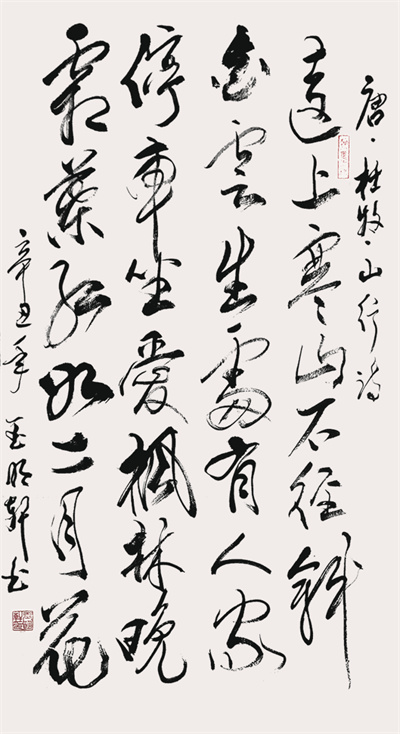 唐·杜牧·山行詩
遠上寒山石徑斜
白雲生處有人家
停車坐愛楓林晚
霜葉紅於二月花
辛丑年 玉明軒書